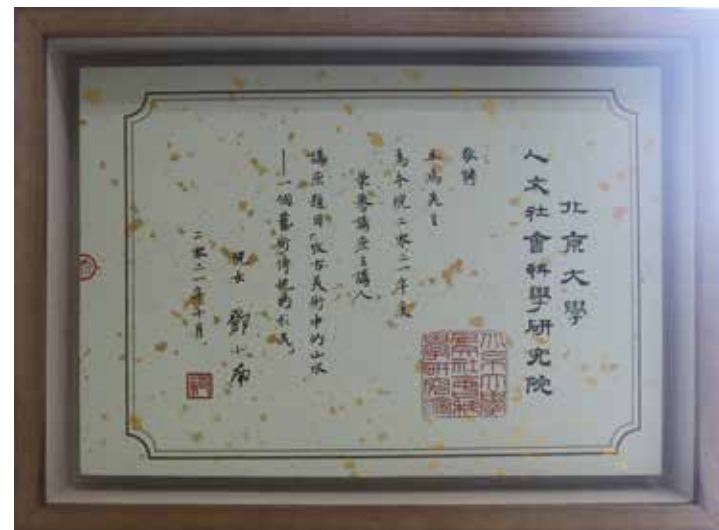 北京大學
人文社會科學研究院
敬聘
巫鴻先生
為本院二零二一年度
榮譽講座主講人
講座題目「古美術中的山水
——一個藝術傳統的形成」
院長 鄧小南
二零二一年十月